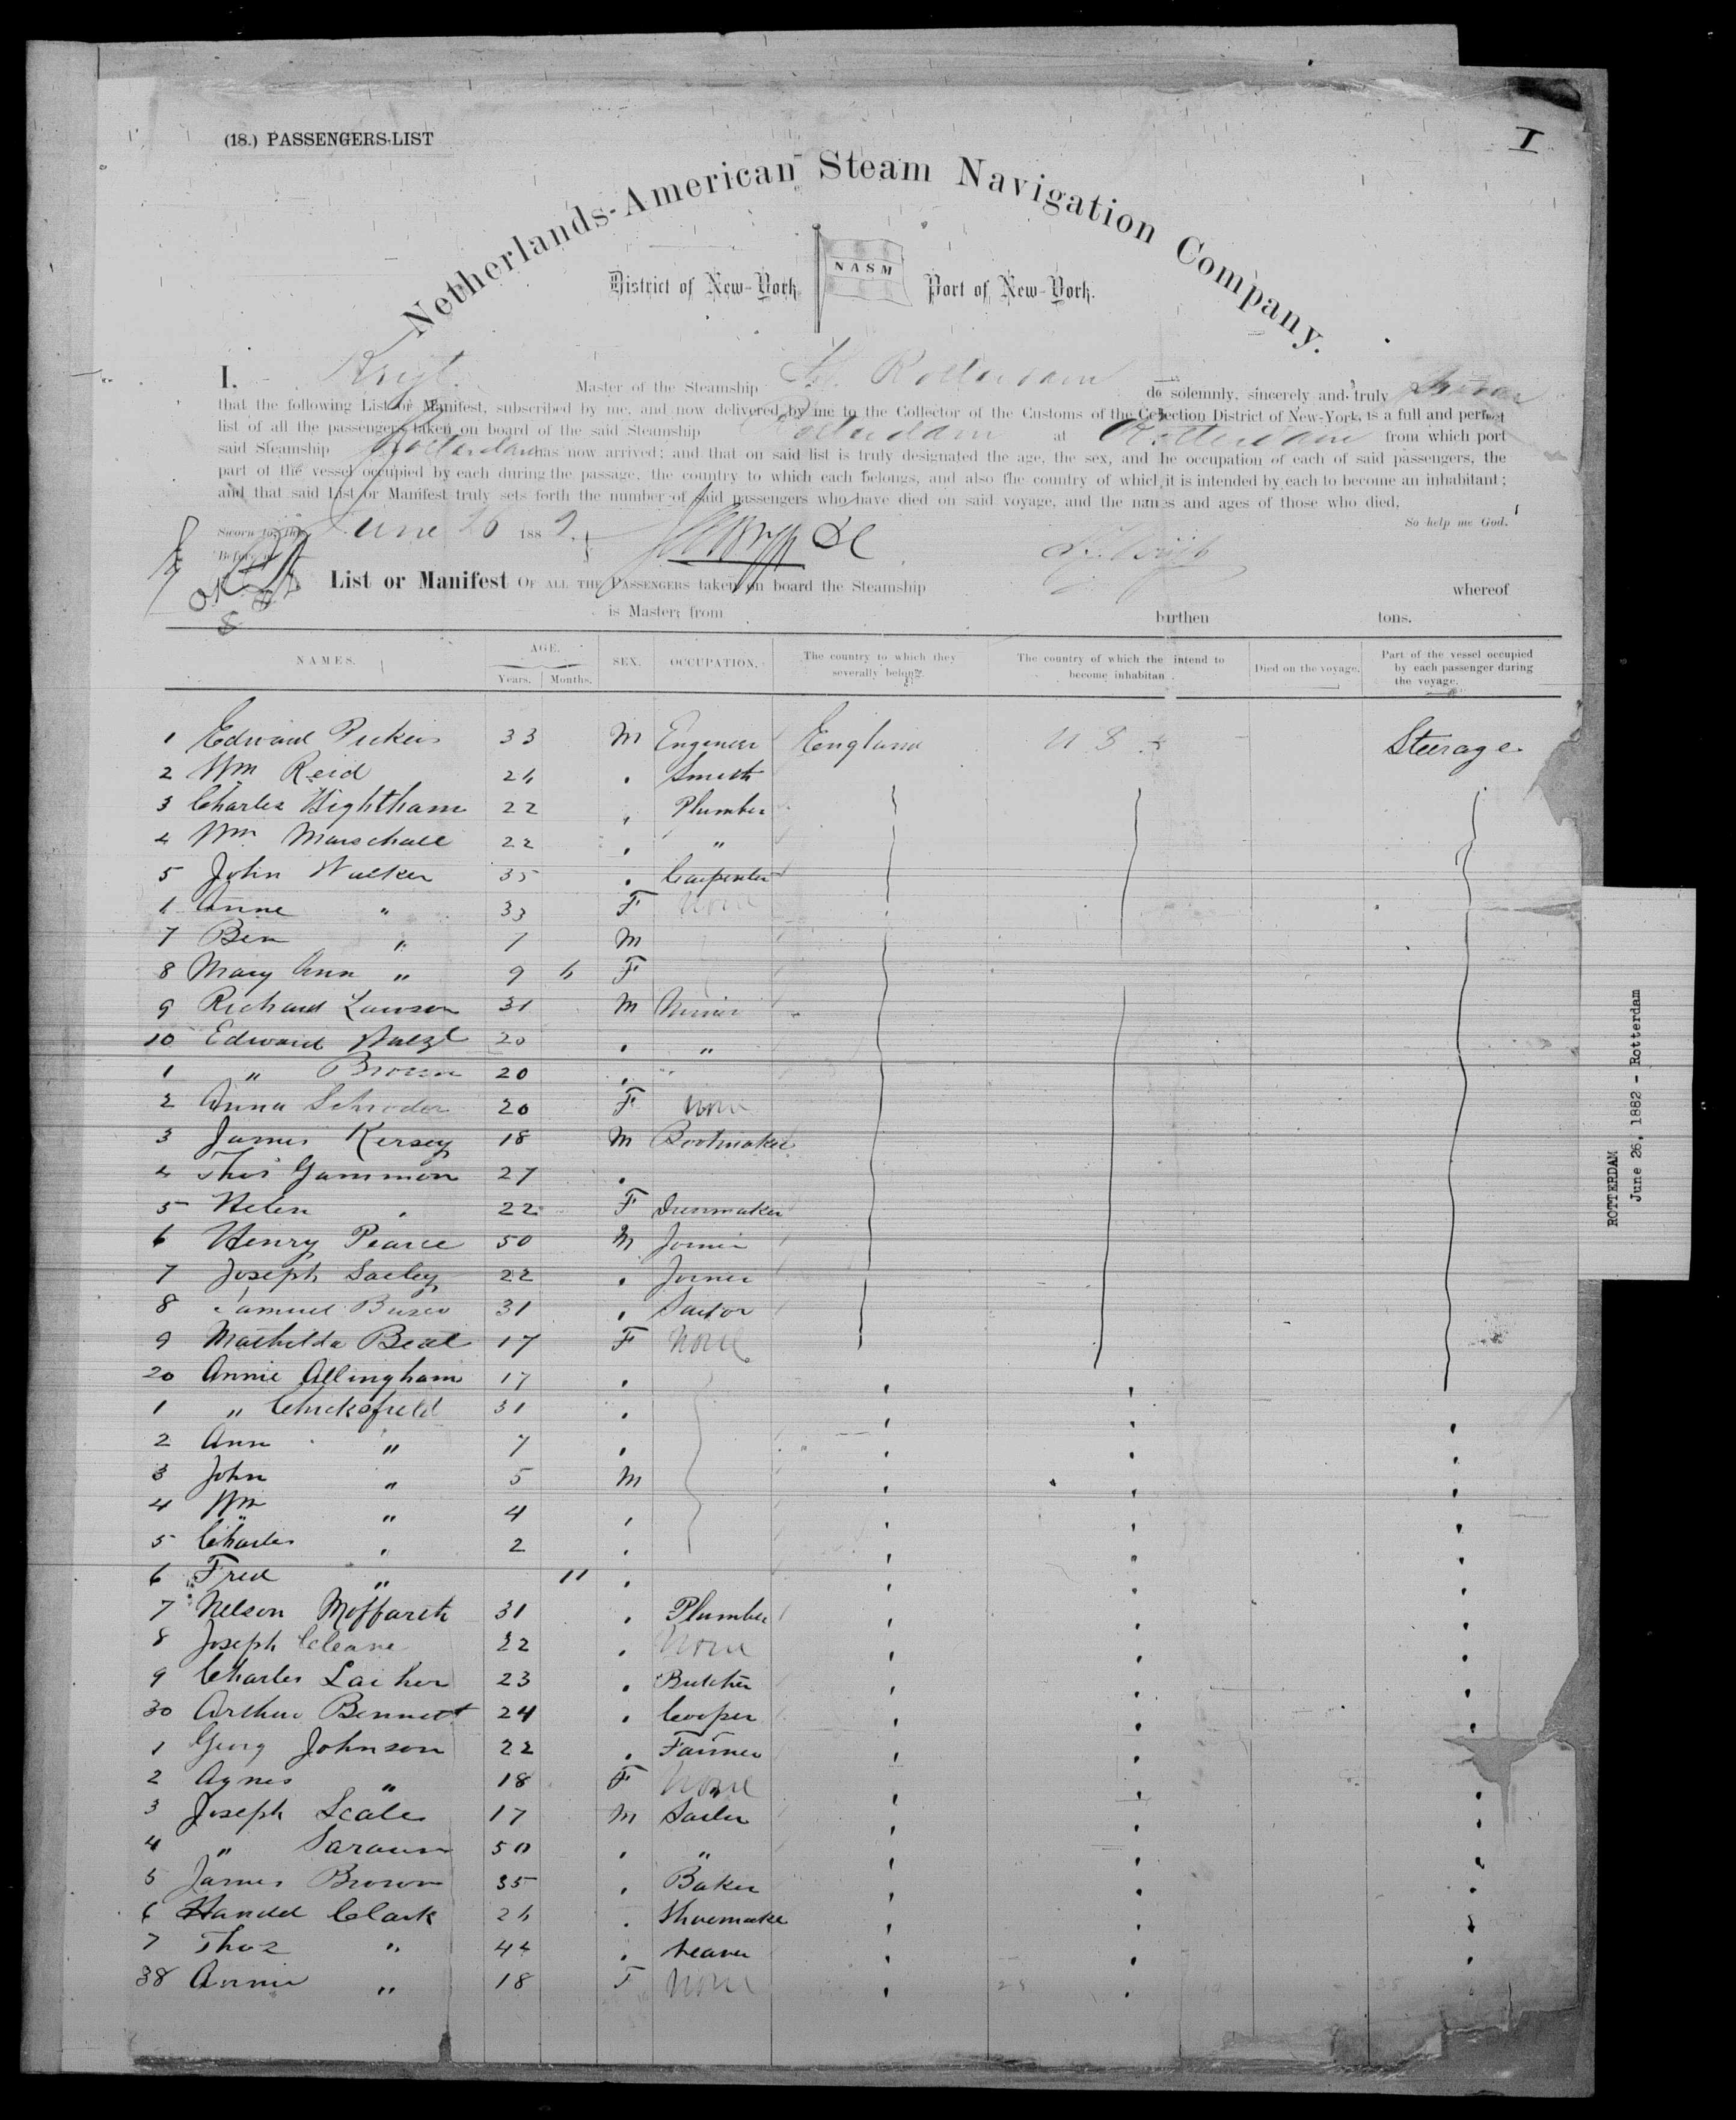 I
(18.) PASSENGERS-LIST
Netherlands-American Steam Navigation Company.
District of New-York NASM Port of New-York.
I. Master of the Steamship Rotterdam do solemnly, sincerely and truly
that the following List or Manifest, subscribed by me, and now delivered by me to the Collector of the Customs of the Collection District of New-York, is a full and perfect
list of all the passengers taken on board of the said Steamship Rotterdam at Rotterdam from which port
said Steamship Rotterdam has now arrived; and that on said list is truly designated the age, the sex, and he occupation of each of said passengers, the
part of the vessel occupied by each during the passage, the country to which each belongs, and also the country of which it is intended by each to become an inhabitant;
and that said List or Manifest truly sets forth the number of said passengers who have died on said voyage, and the names and ages of those who died,
So help me God.
Sworn to, this June 26 1882
Before
List or Manifest OF ALL THE PASSENGERS taken on board the Steamship whereof
is Master, from burthen tons.
NAMES. AGE. Years. Months. SEX. OCCUPATION. The country to which they severally belong. The country of which the intend to become inhabitan Died on the voyage. Part of the vessel occupied by each passenger during the voyage.
1 Edward 33 M Engineer England U S Steerage
2 Wm Reid 26 Smith
3 Charles Wightham 22 Plumber
4 Wm Marschall 22 "
5 John Walker 35 Carpenter
Anne " 33 F None
7 Ben " 7 M
8 Mary Ann " 9 6 F
9 Richard Lawson 31 M
10 Edward 20 "
1 " Brown 20 "
2 Anna Schroder 20 F None
3 James Kersey 18 M Bootmaker
4 Thos Gammon 27
5 Helen 22 F Dressmaker
6 Henry Pearce 50 M Joiner
7 Joseph 22 Joiner
8 Samuel 31
9 Mathilda Beal 17 F None
20 Annie Allingham 17
1 " Chicksfield 31
2 Ann " 7
3 John " 5 M
4 Wm " 4
5 Charles 2
6 Fred " 11
7 Nelson 31 Plumber
8 Joseph 22 None
9 Charles 23 Butcher
30 Arthur Bennett 24 Cooper
1 Georg Johnson 22 Farmer
2 Agnes " 18 F None
3 Joseph Scales 17 M
4 " 50 "
5 James Brown 35 Baker
6 Clark 26 Shoemaker
7 Thos " 44
38 Annie " 18 F None
ROTTERDAM
June 26, 1882 - Rotterdam